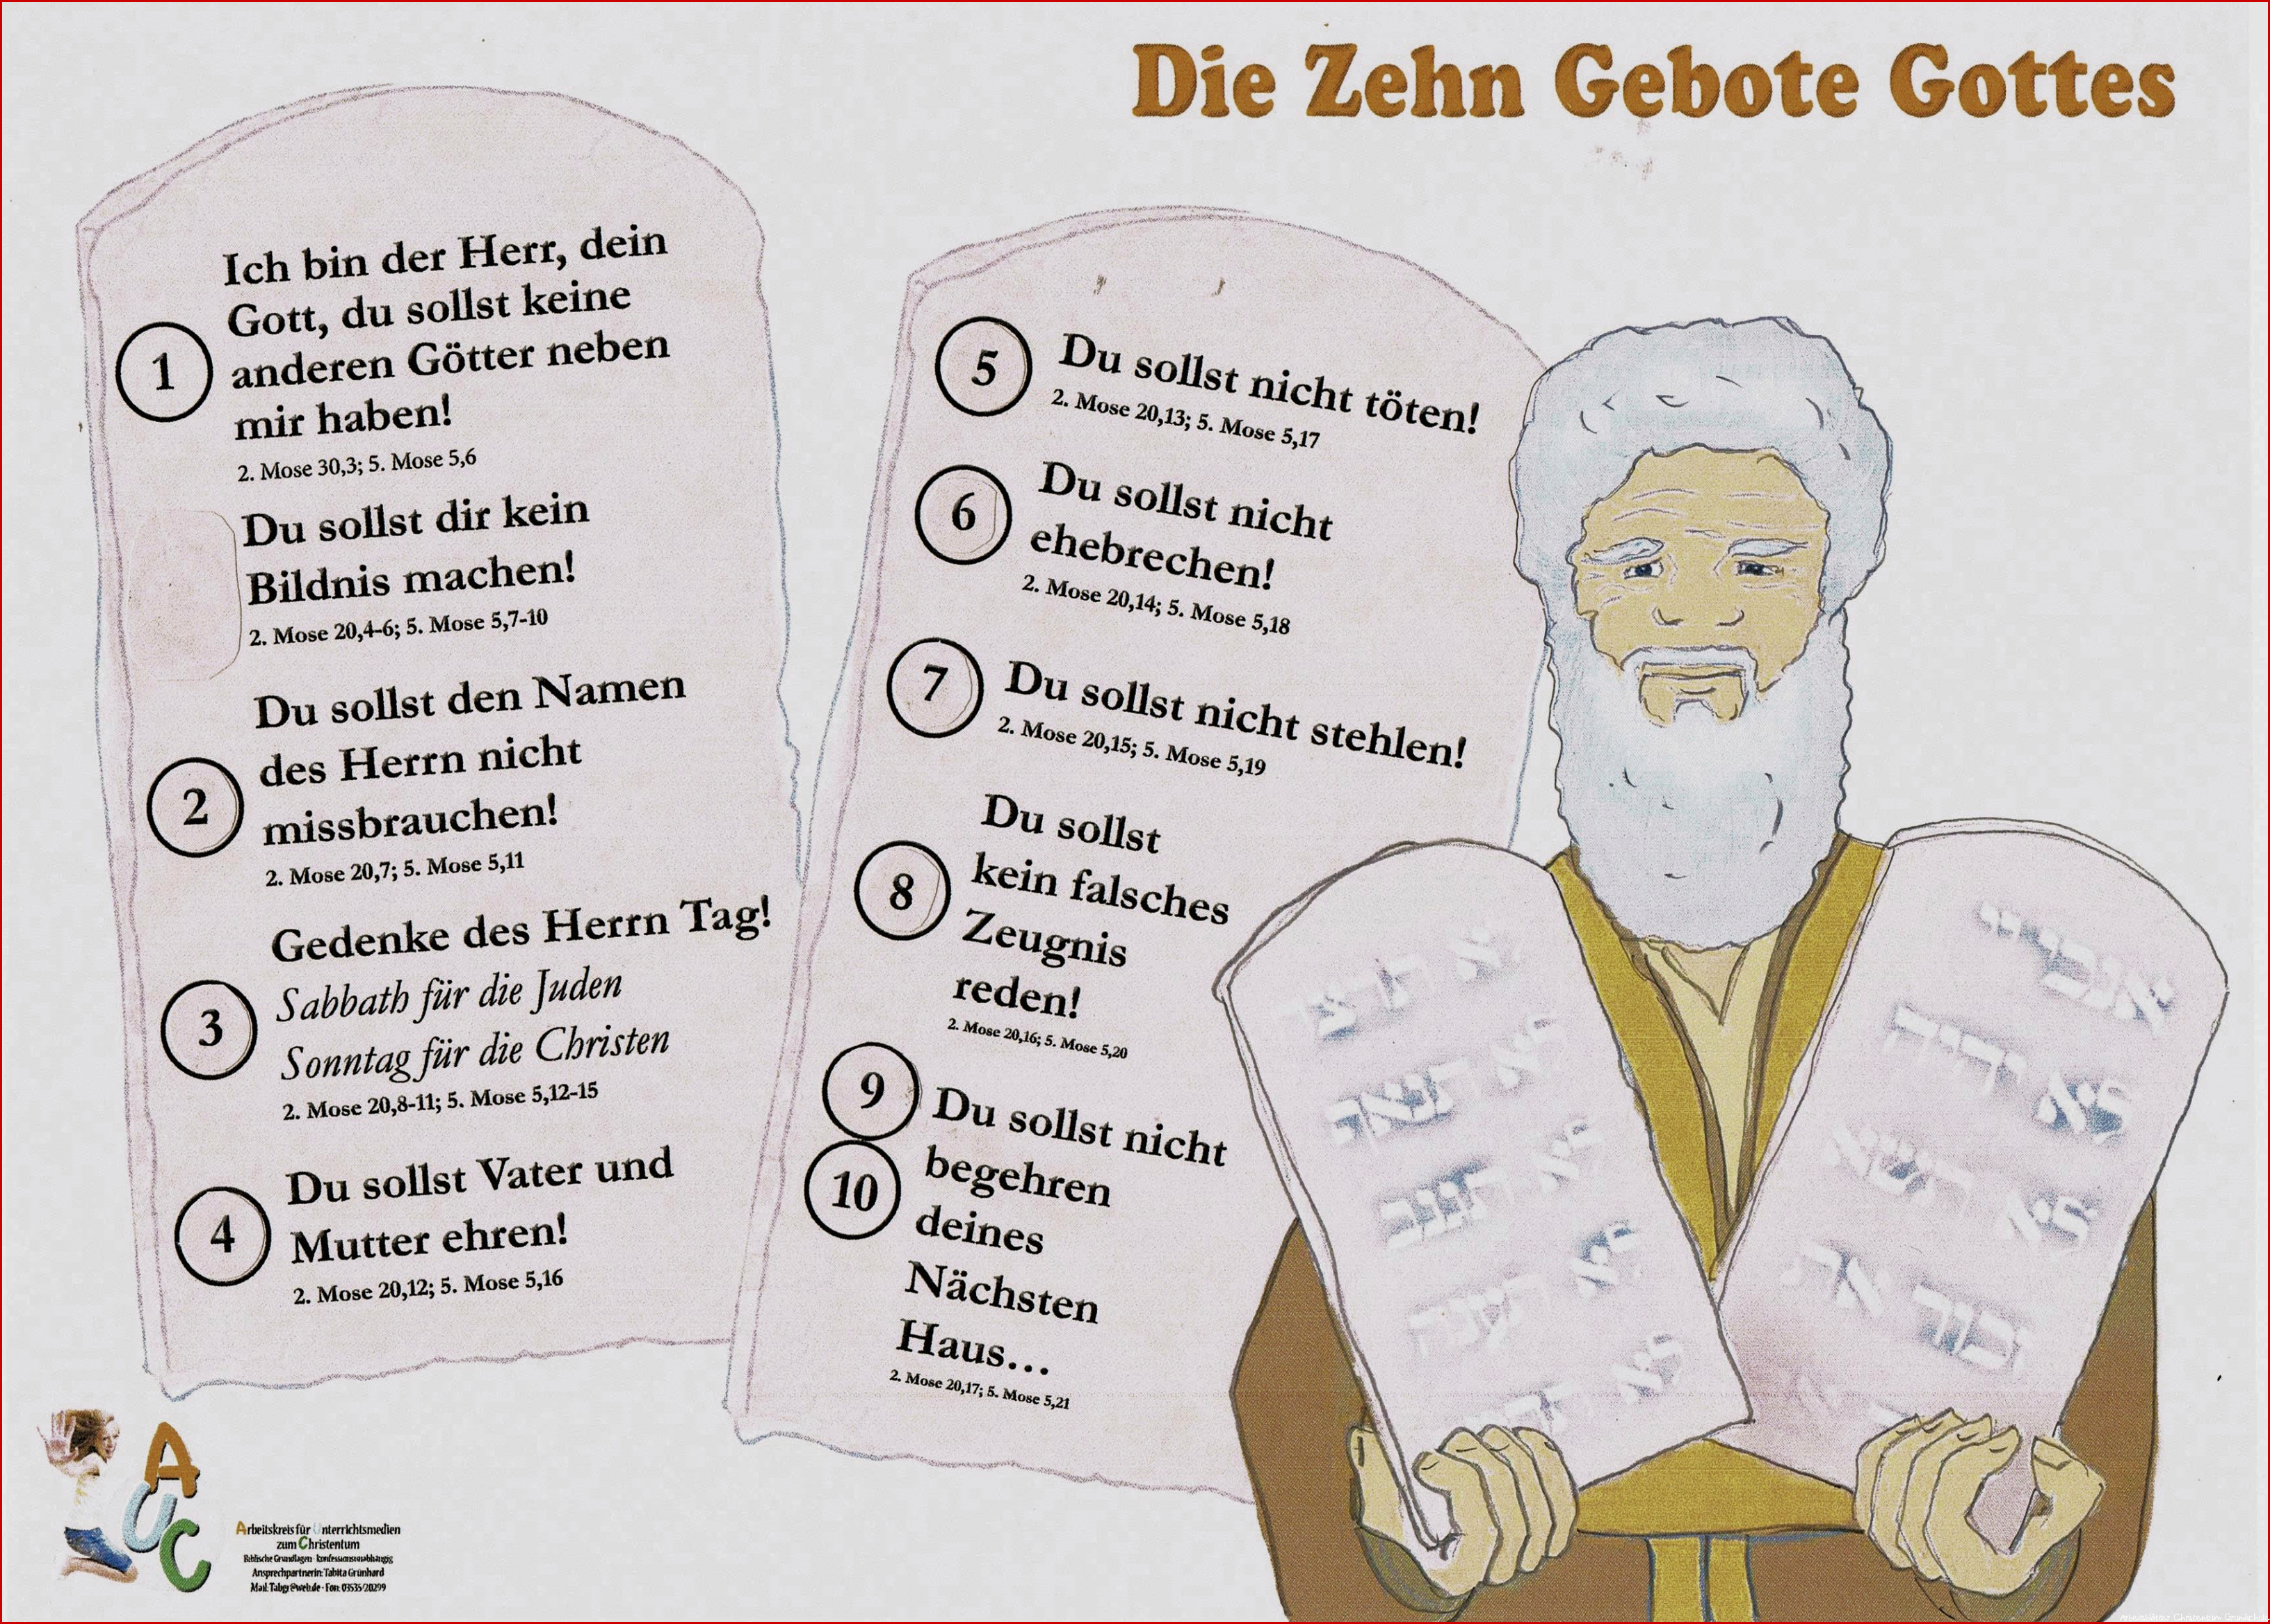 Die Zehn Gebote Gottes
1
Ich bin der Herr, dein
Gott, du sollst keine
anderen Götter neben
mir haben!
2. Mose 30,3; 5. Mose 5,6
Du sollst dir kein
Bildnis machen!
2. Mose 20,4-6; 5. Mose 5,7-10
2
Du sollst den Namen
des Herrn nicht
missbrauchen!
2. Mose 20,7; 5. Mose 5,11
3
Gedenke des Herrn Tag!
Sabbath für die Juden
Sonntag für die Christen
2. Mose 20,8-11; 5. Mose 5,12-15
4
Du sollst Vater und
Mutter ehren!
2. Mose 20,12; 5. Mose 5,16
5
Du sollst nicht töten!
2. Mose 20,13; 5. Mose 5,17
6
Du sollst nicht
ehebrechen!
2. Mose 20,14; 5. Mose 5,18
7
Du sollst nicht stehlen!
2. Mose 20,15; 5. Mose 5,19
8
Du sollst
kein falsches
Zeugnis
reden!
2. Mose 20,16; 5. Mose 5,20
9
10
Du sollst nicht
begehren
deines
Nächsten
Haus...
2. Mose 20,17; 5. Mose 5,21
AUC
Arbeitskreis für Unterrichtsmedien
zum Christentum
Biblische Grundlagen · konfessionsunabhängig
Ansprechpartnerin: Tabita Grünhard